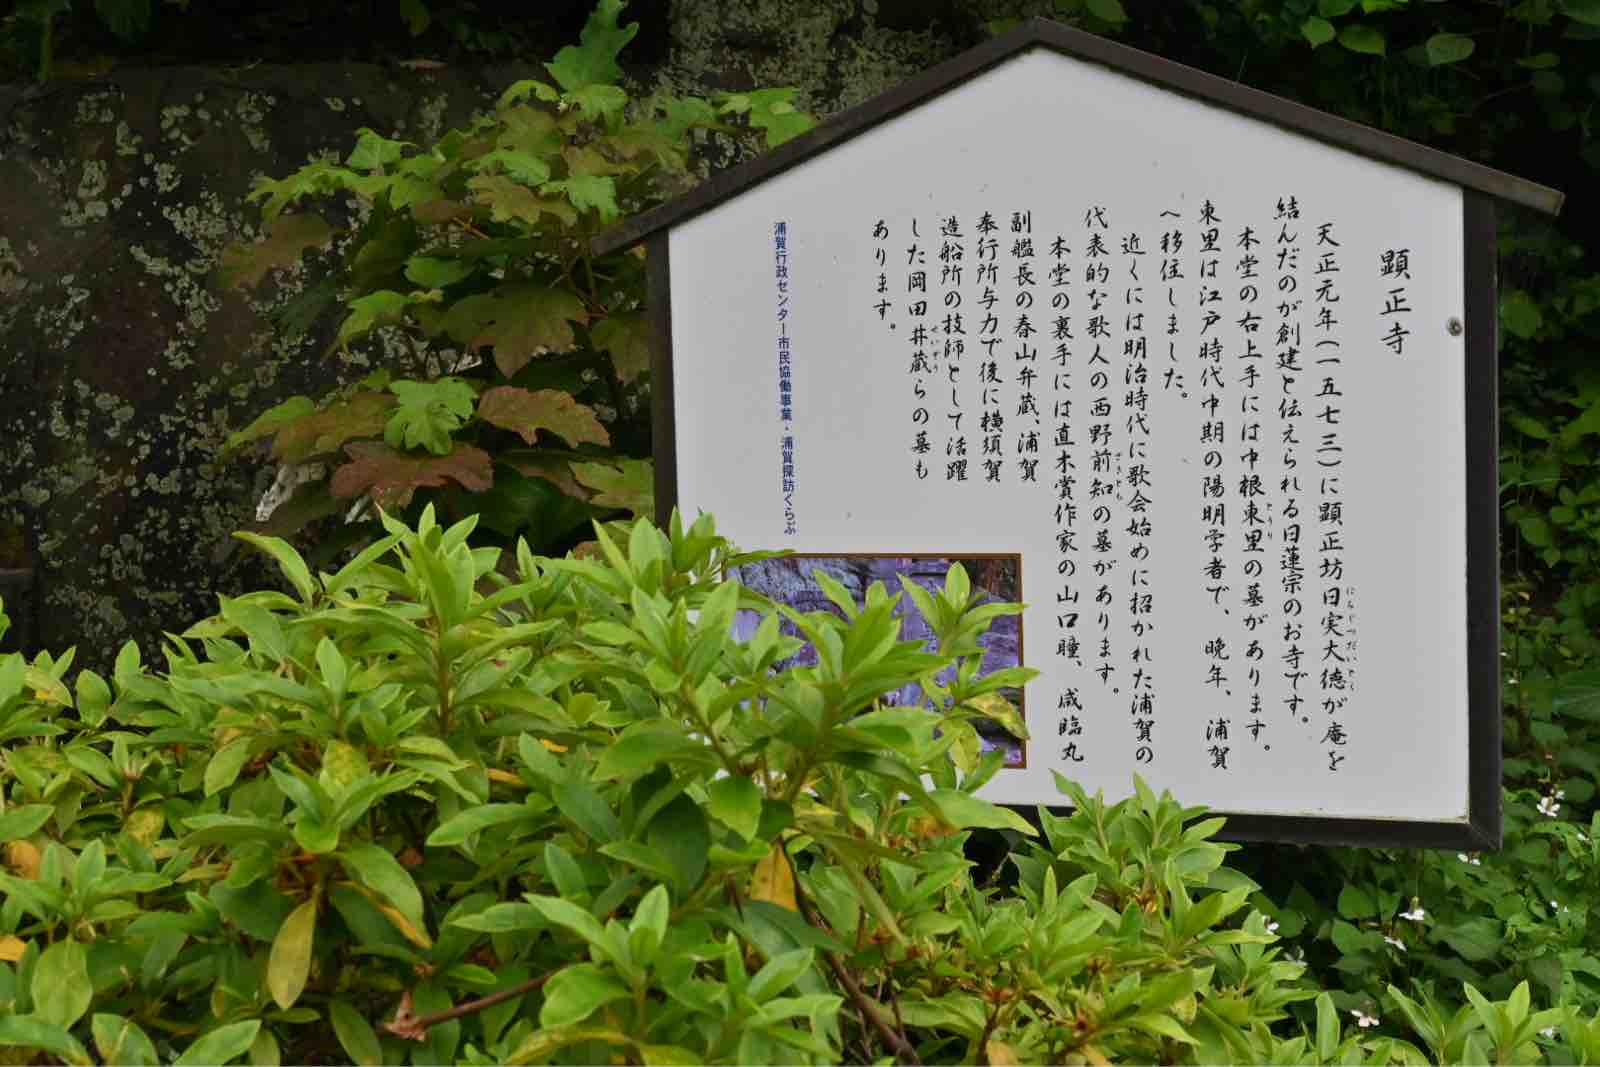 顕正寺
天正元年(一五七三)に顕正坊日実大徳が庵を
にちじつだいとく
結んだのが創建と伝えられる日蓮宗のお寺です。
本堂の右上手には中根東里の墓があります。
とうり
東里は江戸時代中期の陽明学者で、晩年、浦賀
へ移住しました。
近くには明治時代に歌会始めに招かれた浦賀の
代表的な歌人の西野前知の墓があります。
さきとも
本堂の裏手には直木賞作家の山口瞳、咸臨丸
副艦長の春山弁蔵、浦賀
奉行所与力で後に横須賀
造船所の技師として活躍
した岡田井蔵らの墓も
せいぞう
あります。
浦賀行政センター市民協働事業・浦賀探訪くらぶ